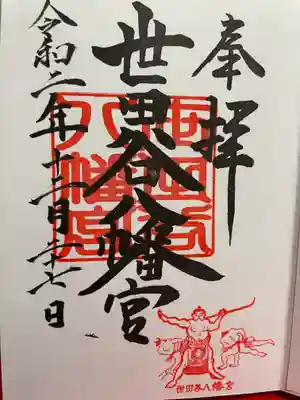 奉拝
世田谷八幡宮
世田谷八幡宮
令和二年十二月二十七日
世田谷八幡宮